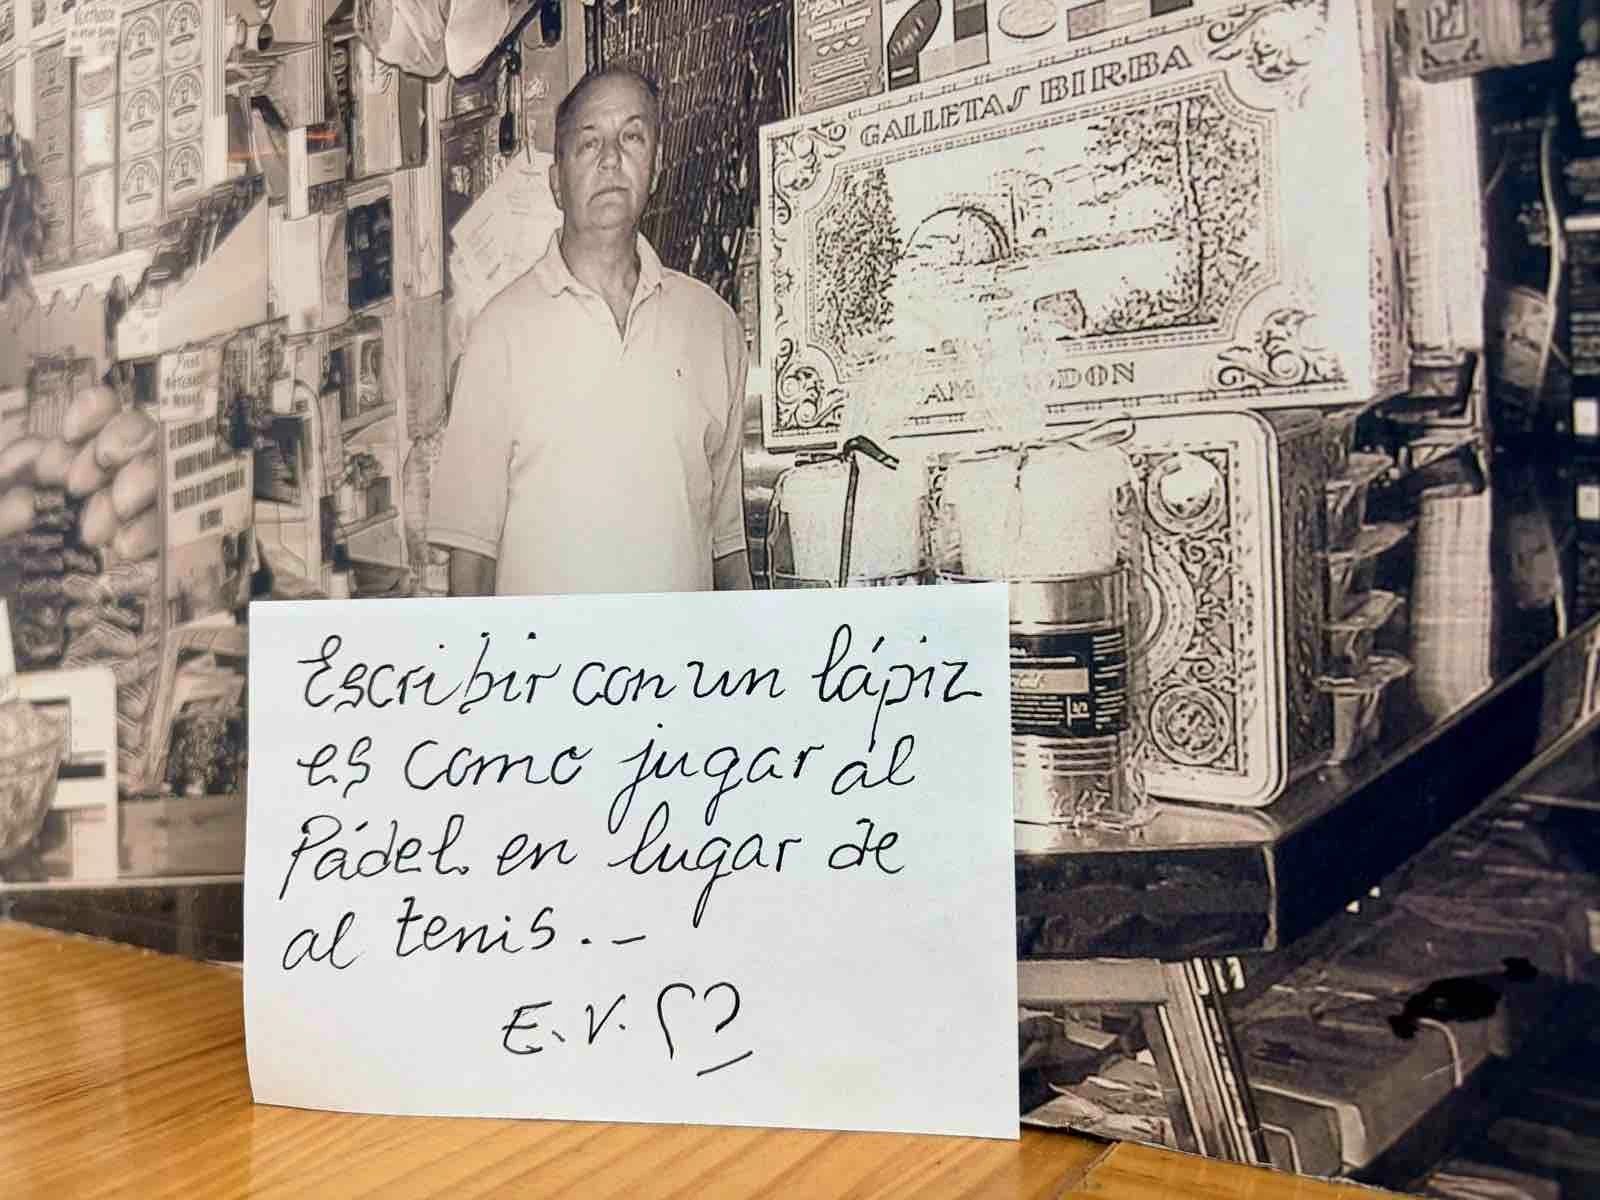 GALLETAS BIRBA
CAMPRODON
Escribir con un lápiz
es como jugar al
Pádel en lugar de
al tenis. -
E. V.